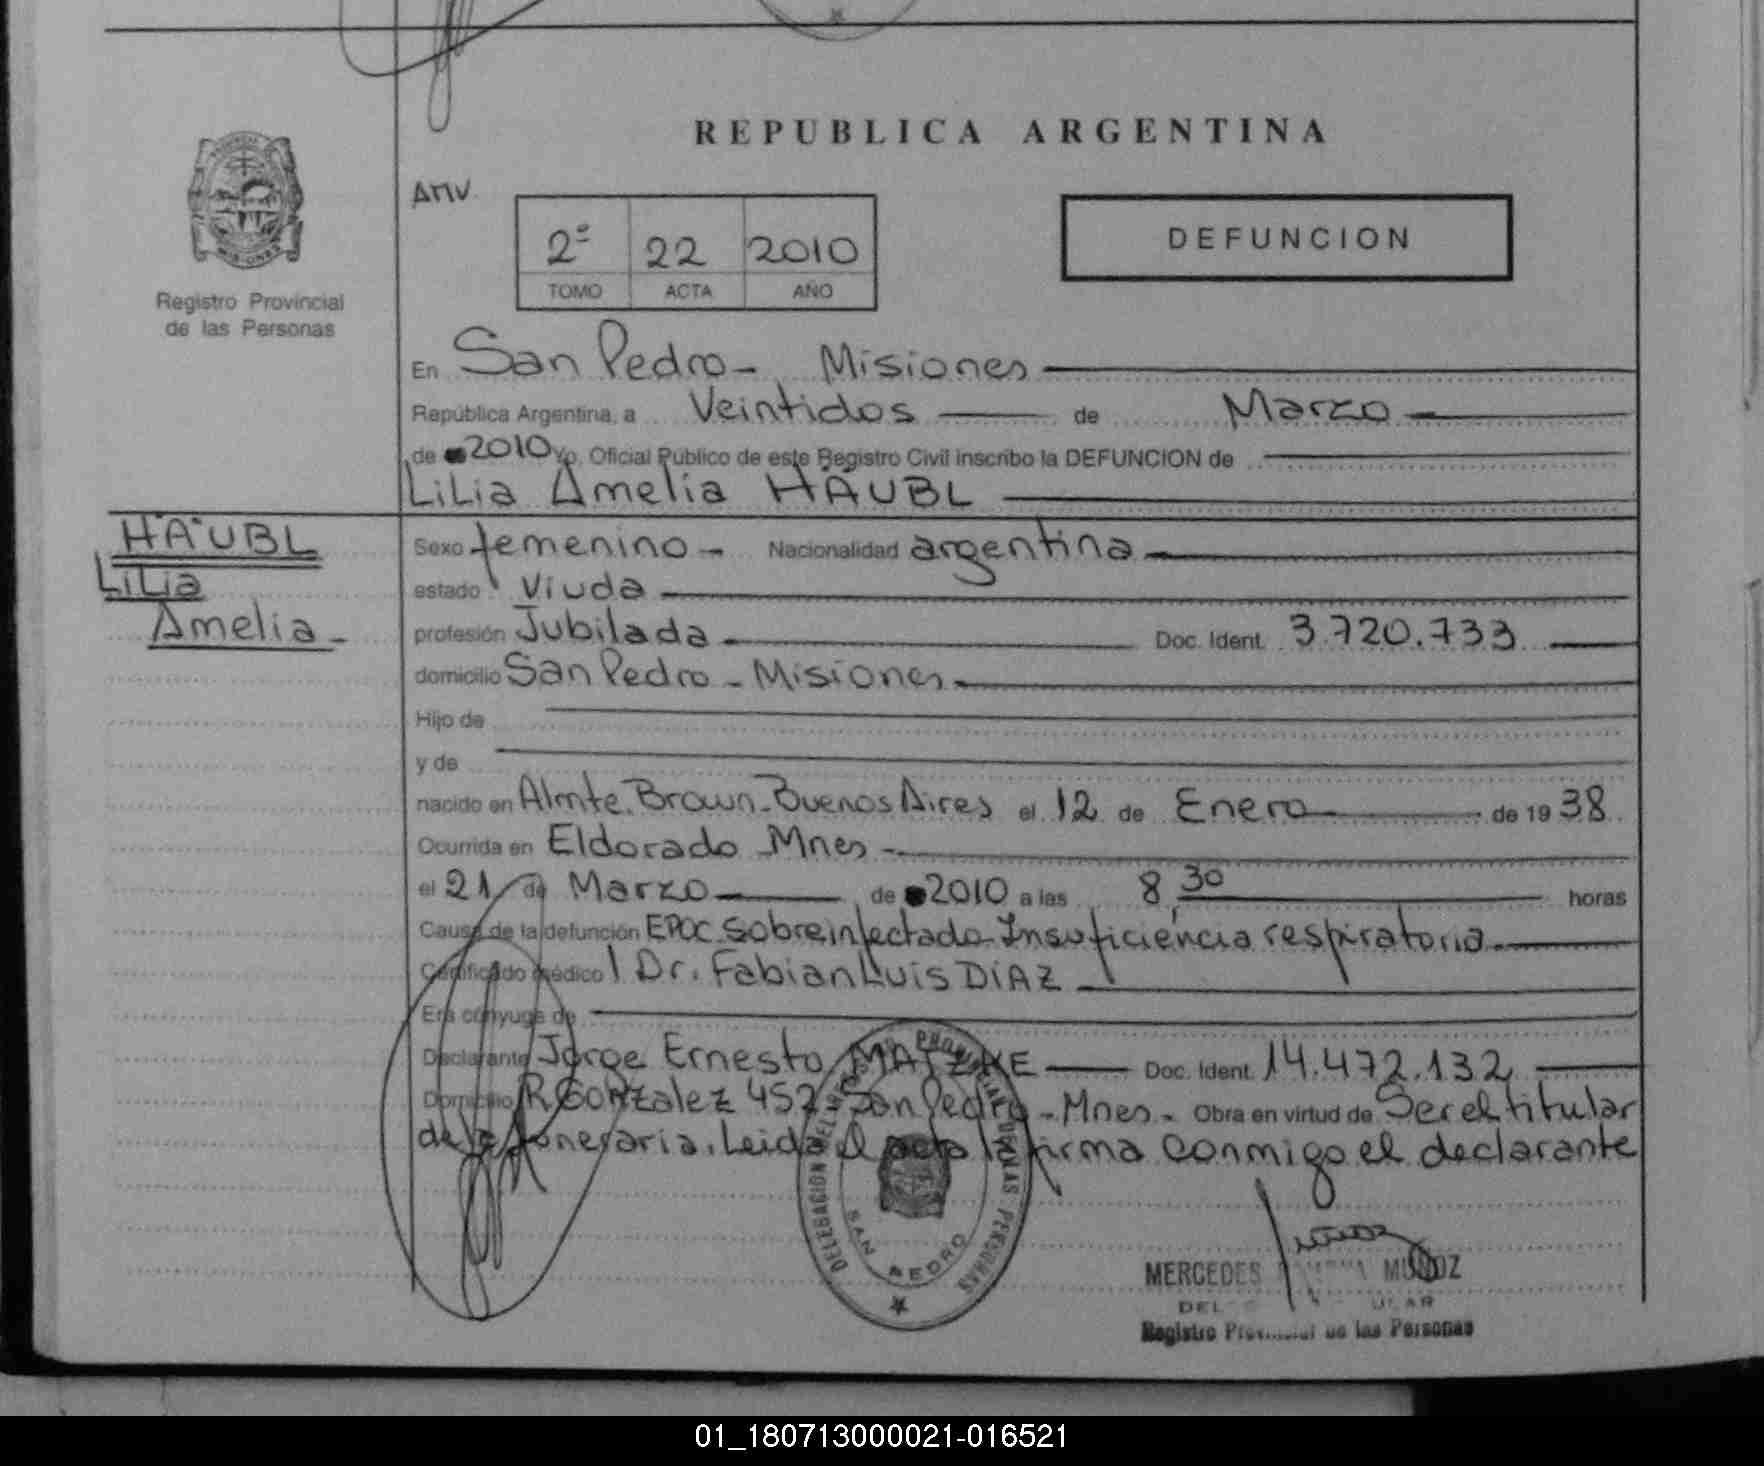 REPUBLICA ARGENTINA
Anv.
2º 22 2010
TOMO ACTA AÑO
DEFUNCION
MISIONES
Registro Provincial
de las Personas
En San Pedro - Misiones
República Argentina, a Veintidos de Marzo
de 2010 Yo, Oficial Público de este Registro Civil inscribo la DEFUNCION de
LiLia Amelia HAUBL
HAUBL
LiLia
Amelia -
Sexo femenino - Nacionalidad argentina
estado Viuda
profesión Jubilada Doc. Ident. 3.720.733
domicilio San Pedro - Misiones
Hijo de
y de
nacido en Almte. Brown - Buenos Aires el 12 de Enero de 19 38
Ocurrida en Eldorado Mnes -
el 21 de Marzo de 2010 a las 8,30 horas
Causa de la defunción EPOC sobreinfectado - Insuficiencia respiratoria
Certificado médico Dr. Fabian Luis DiAZ
Era cónyuge de
Declarante Jorge Ernesto MATZKE Doc. Ident. 14.472.132
Domicilio R Gonzalez 452 San Pedro - Mnes - Obra en virtud de Ser el titular
de la funeraria. Leida el acta la firma conmigo el declarante
DELEGACION DEL REGISTRO PROVINCIAL DE LAS PERSONAS
SAN PEDRO
MERCEDES MUÑOZ
Registro Provincial de las Personas
01_180713000021-016521